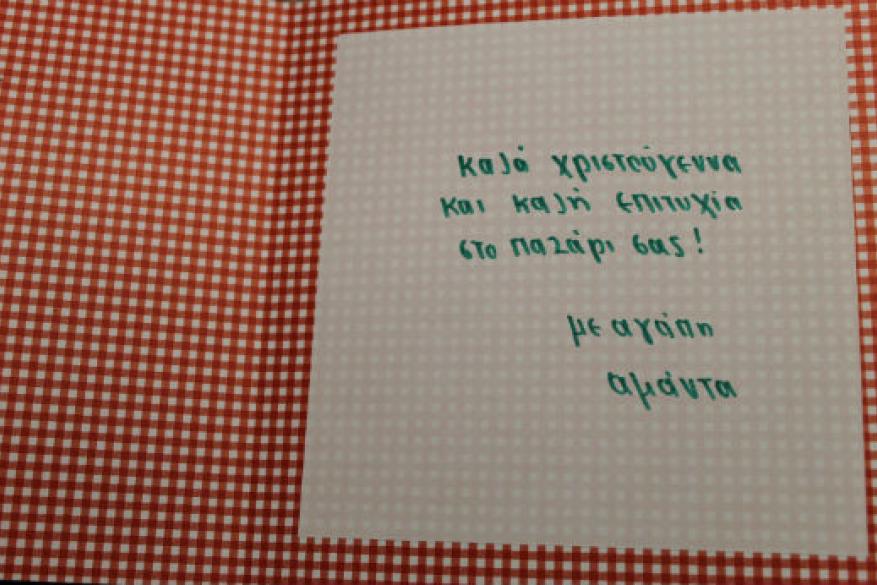 καλά χριστούγεννα
και καλή επιτυχία
στο παζάρι σας!
με αγάπη
αμάντα